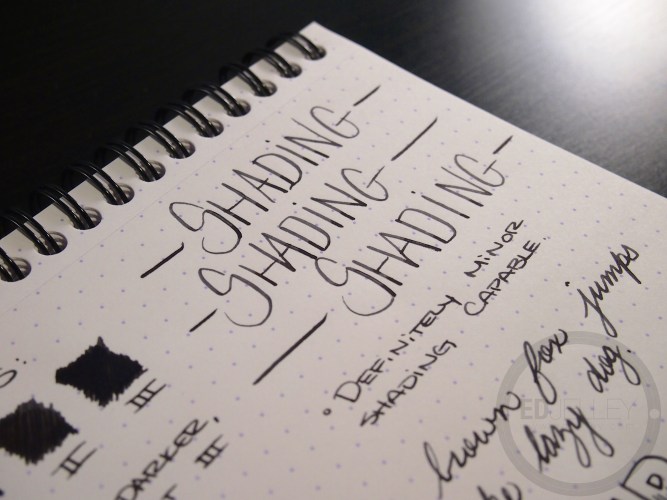 - SHADING -
- SHADING -
- SHADING -
° DEFINITELY MINOR
SHADING CAPABLE.
III
II
DARKER,
III
brown fox jumps
lazy dog.
ED JELLEY